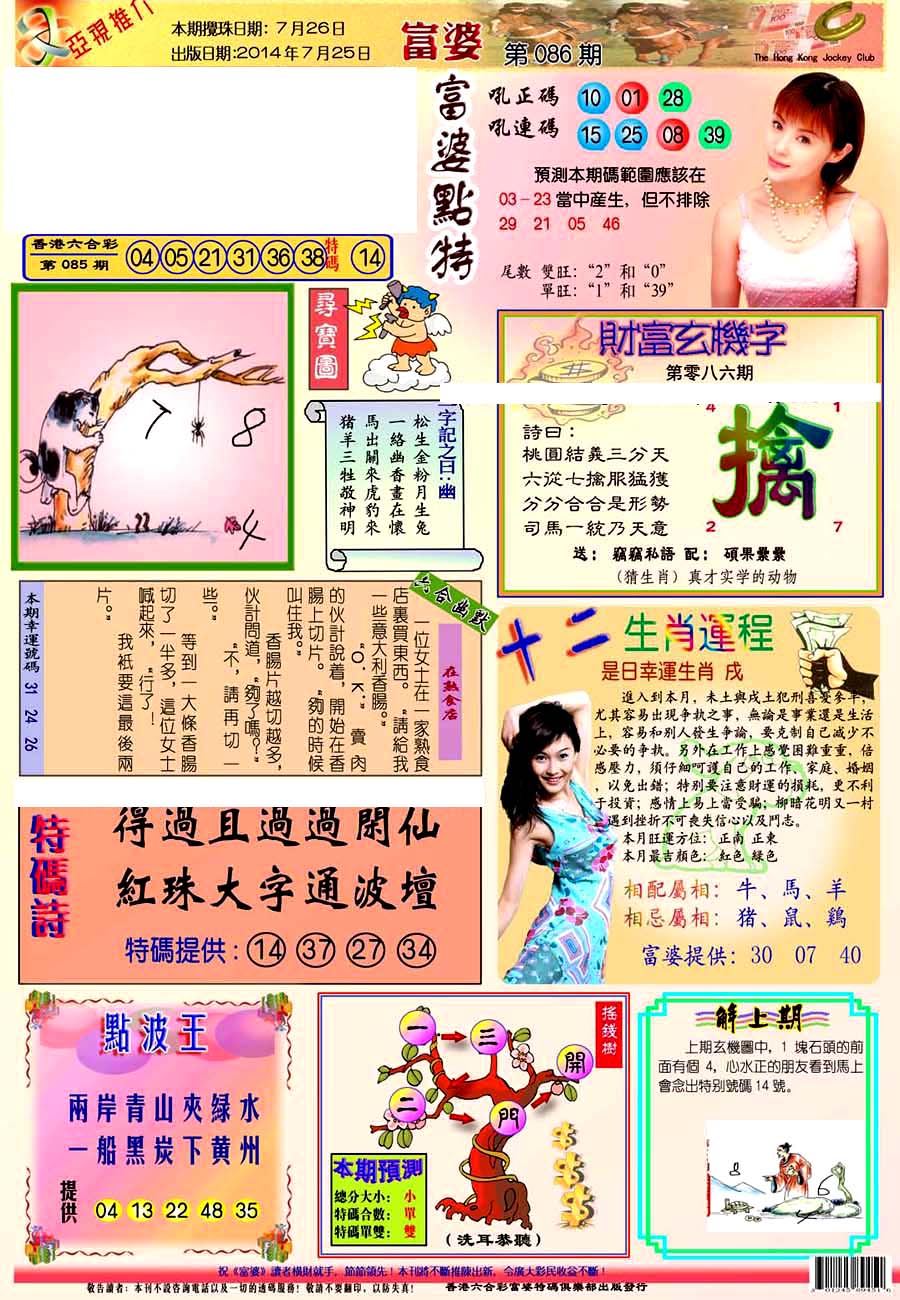 亞視推介
本期攪珠日期: 7月26日
出版日期:2014年7月25日
富婆
第 086 期
The Hong Kong Jockey Club
富婆點特
吼正碼 10 01 28
吼連碼 15 25 08 39
預測本期碼範圍應該在
03－23 當中産生，但不排除
29 21 05 46
尾數 雙旺：“2”和“0”
單旺：“1”和“39”
香港六合彩
第 085 期
04 05 21 31 36 38 特碼 14
尋寶圖
7 8
4
字記之曰：幽
松生金粉月生兔
一絡幽香畫在懷
馬出關來虎豹來
猪羊三牲敬神明
財富玄機字
第零八六期
4 1
擒
2 7
詩曰：
桃圓結義三分天
六從七擒服猛獲
分分合合是形勢
司馬一統乃天意
送： 竊竊私語 配： 碩果纍纍
（猜生肖）真才实学的动物
本期幸運號碼 31 24 26
六合幽默
在熟食店
一位女士在一家熟食
店裏買東西。“請給我
一些意大利香腸。”
“O．K．”賣肉
的伙計說着，開始在香
腸上切片。“夠的時候
叫住我。”
香腸片越切越多，
伙計問道，“夠了嗎？”
“不，請再切一
些。”
等到一大條香腸
切了一半多，這位女士
喊起來，“行了！
我衹要這最後兩
片。”
十二生肖運程
是日幸運生肖 戌
進入到本月，未土與戌土犯刑喜憂參半，
尤其容易出現争執之事，無論是事業還是生活
上，容和别人發生争論，要克制自己减少不
必要的争執。另外在工作上感覺困難重重，倍
感壓力，須仔細呵護自己的工作、家庭、婚姻
，以免出錯；特别要注意財運的損耗，更不利
于投資；感情上易上當受騙；柳暗花明又一村
，遇到挫折不可喪失信心以及鬥志。
本月旺運方位： 正南 正東
本月最吉顏色： 紅色 綠色
相配屬相： 牛、馬、羊
相忌屬相： 猪、鼠、鷄
富婆提供： 30 07 40
特碼詩
得過且過過閑仙
紅珠大字通波壇
特碼提供：14 37 27 34
點波王
兩岸青山夾緑水
一船黑炭下黄州
提供
04 13 22 48 35
搖錢樹
一 三 開
二 門
本期預測
總分大小： 小
特碼合數： 單
特碼單雙： 雙
（洗耳恭聽）
解上期
上期玄機圖中，1 塊石頭的前
面有個 4，心水正的朋友看到馬上
會念出特别號碼 14 號。
祝《富婆》讀者横財就手，節節領先！本刊將不斷推陳出新，令廣大彩民收益不斷！
敬告讀者：本刊不設咨詢電話以及一切的透碼服務！敬請不要翻印，以防失真！
香港六合彩富婆特碼俱樂部出版發行